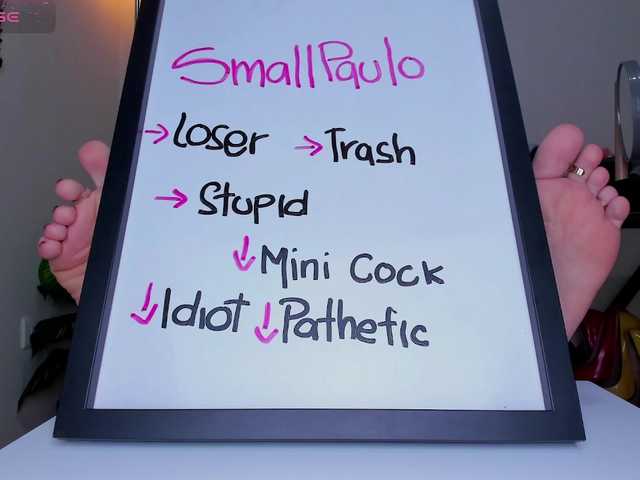 SmallPaulo
→ Loser → Trash
→ Stupid
↓ Mini Cock
↓ Idiot ↓ Pathetic